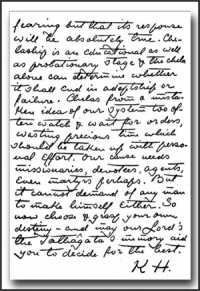 fearing but that its response
will be absolutely true. Che-
laship is an educational as well
as probationary stage & the chela
alone can determine whether
it shall end in adeptship or
failure. Chelas from a mista-
ken idea of our system too of-
ten watch & wait for orders,
wasting precious time which
should be taken up with perso-
nal effort. Our cause needs
missionaries, devotees, agents,
even martyrs perhaps. But
it cannot demand of any man
to make himself either. So
now choose & grasp your own
destiny – and may our Lord's
the Tathâgata's memory aid
you to decide for the best.
K H.